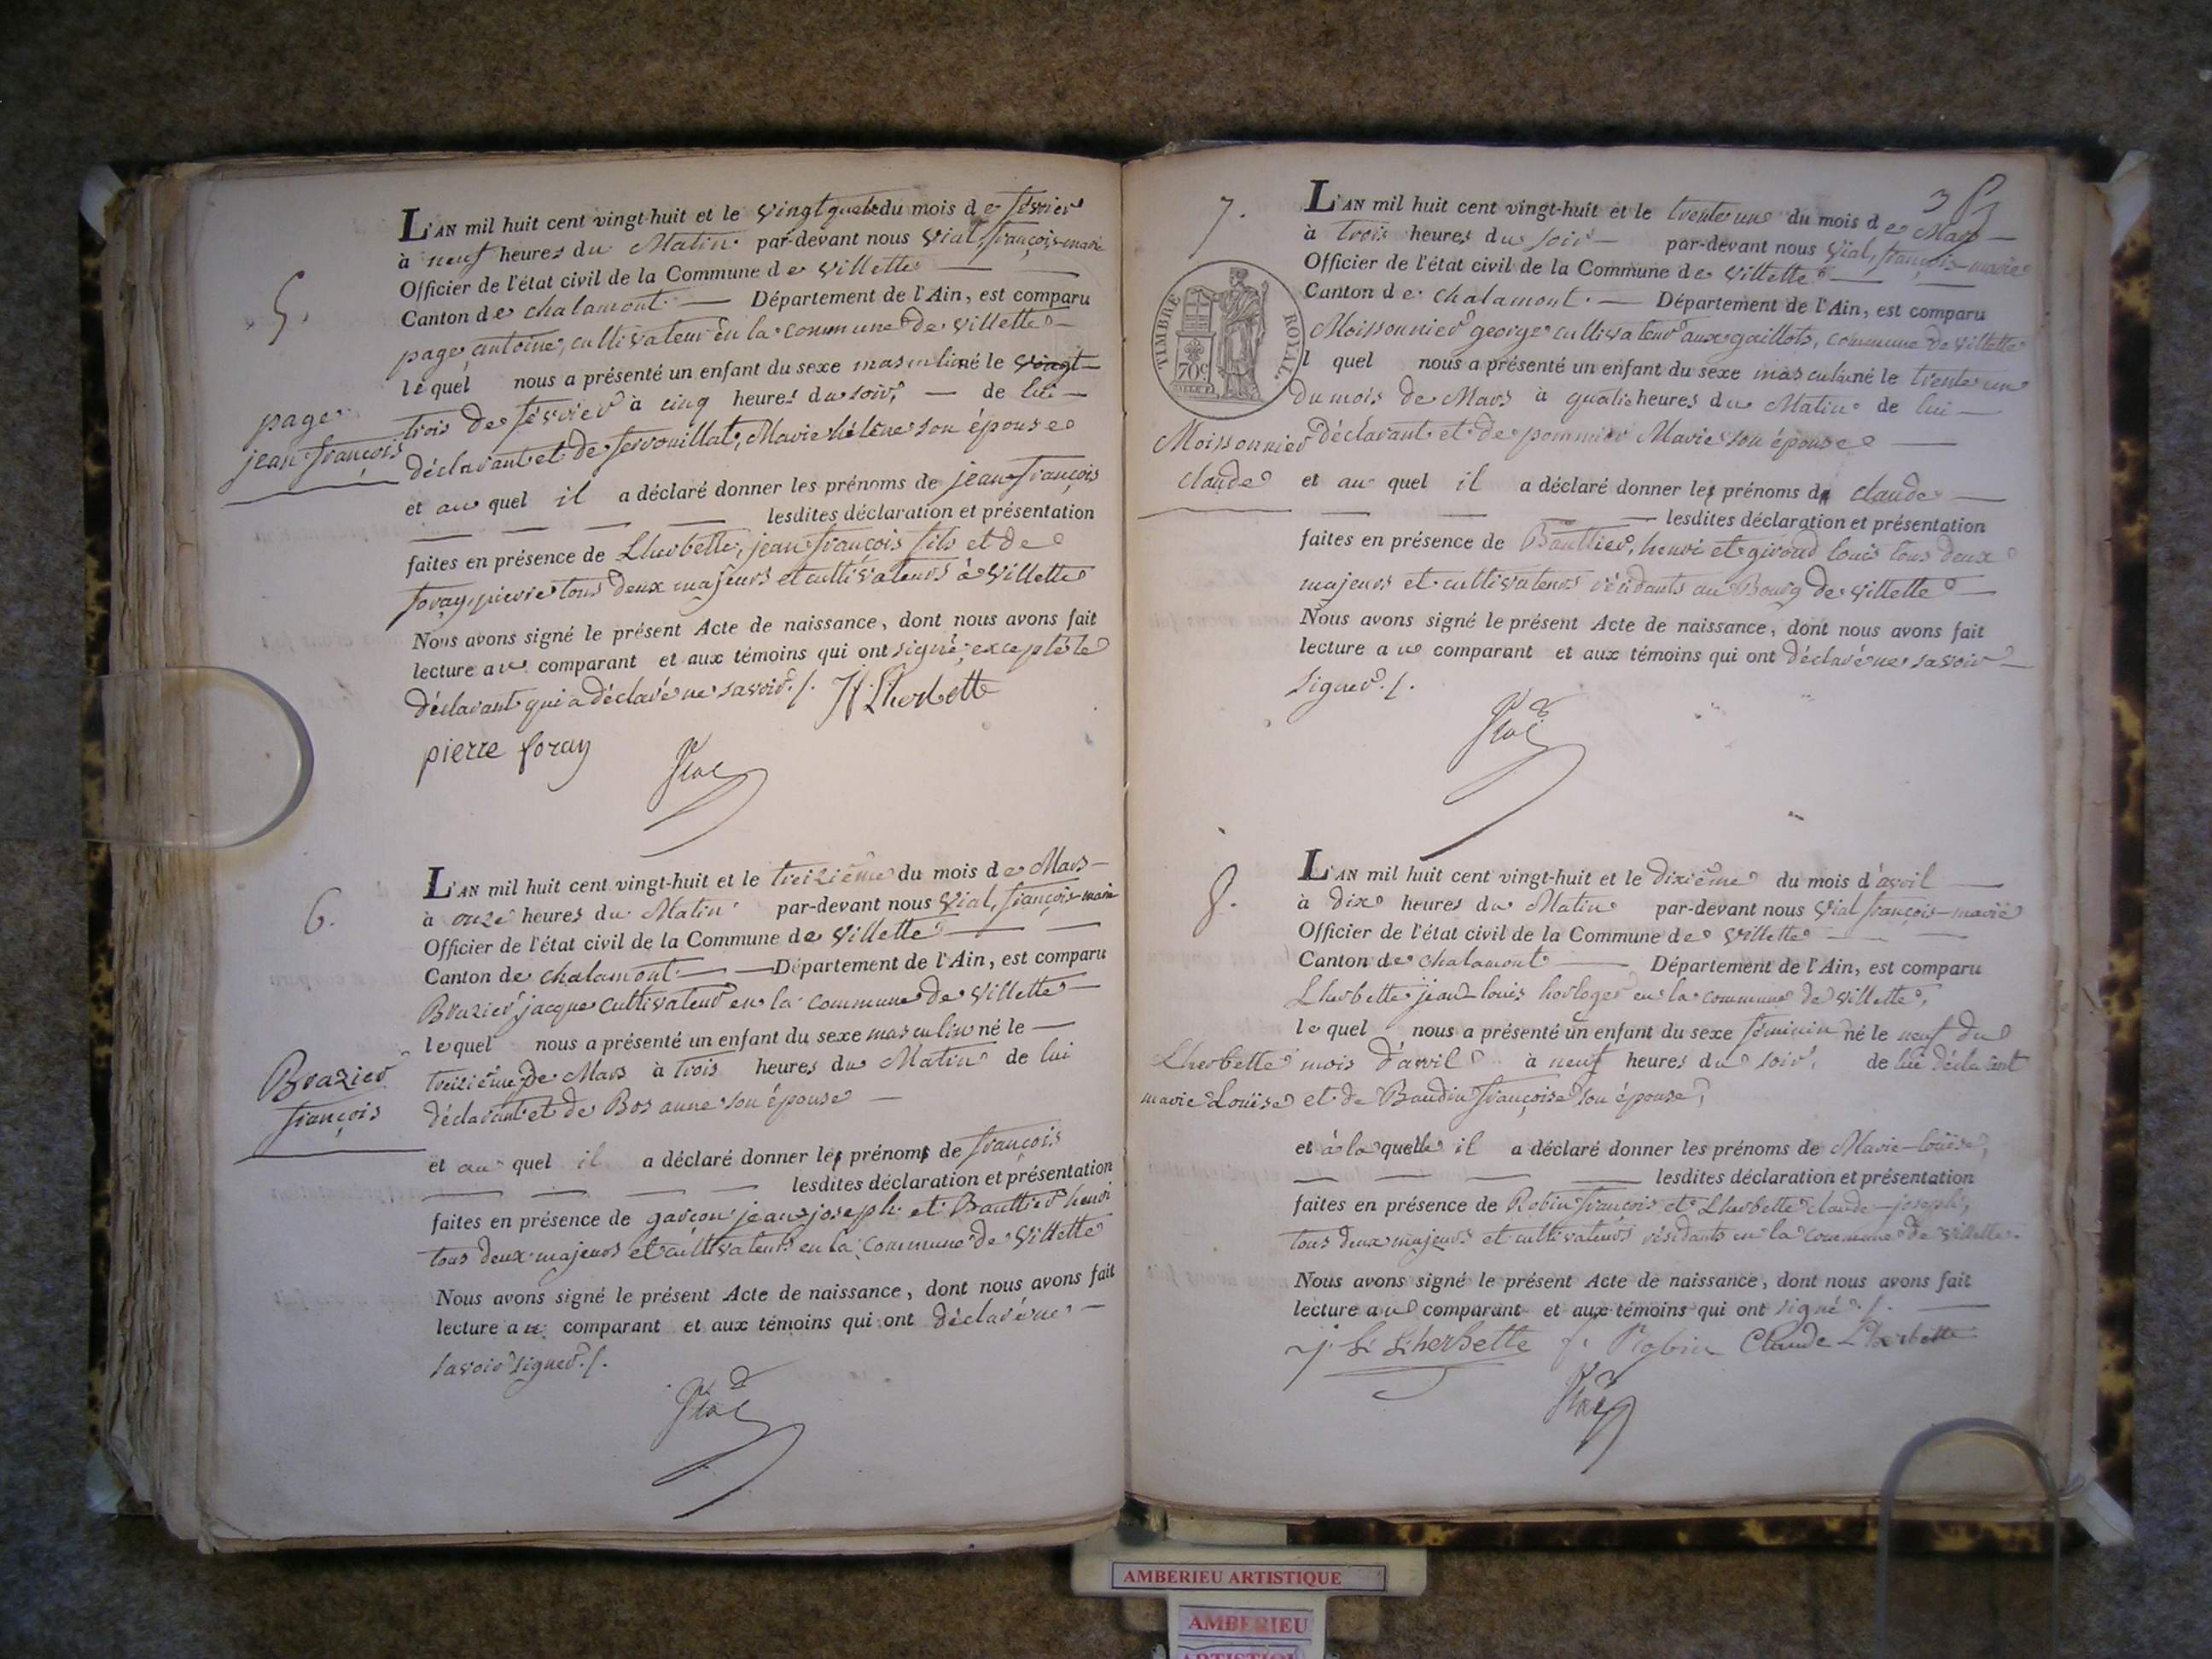 5.
page
jean françois
L'AN mil huit cent vingt-huit et le vingt quatre du mois de février
à neuf heures du Matin par-devant nous Vial, françois-marie
Officier de l'état civil de la Commune de Villette
Canton de chalamont Département de l'Ain, est comparu
page antoine, cultivateur en la commune de Villette
lequel nous a présenté un enfant du sexe masculin né le vingt
trois de février à cinq heures du soir, de lui
déclarant et de servouillat, Marie hélène son épouse
et au quel il a déclaré donner les prénoms de jean françois
lesdites déclaration et présentation
faites en présence de Lherbette, jean françois fils et de
foray, pierre tous deux majeurs et cultivateurs à Villette
Nous avons signé le présent Acte de naissance, dont nous avons fait
lecture au comparant et aux témoins qui ont signé, excepté le
déclarant qui a déclaré ne savoir./.
Lherbette
pierre foray
6.
Brazier
françois
L'AN mil huit cent vingt-huit et le treizième du mois de Mars
à onze heures du Matin par-devant nous Vial, françois-marie
Officier de l'état civil de la Commune de Villette
Canton de chalamont Département de l'Ain, est comparu
Brazier jacque cultivateur en la commune de Villette
lequel nous a présenté un enfant du sexe masculin né le
treizième de Mars à trois heures du Matin de lui
déclarant et de Bos anne son épouse
et au quel il a déclaré donner les prénoms de françois
lesdites déclaration et présentation
faites en présence de garçon jean joseph et Bauttier henri
tous deux majeurs et cultivateurs en la commune de Villette
Nous avons signé le présent Acte de naissance, dont nous avons fait
lecture au comparant et aux témoins qui ont déclaré ne
savoir signer./.
7.
TIMBRE ROYAL
70c
Moissonnier
claude
L'AN mil huit cent vingt-huit et le trente un du mois de Mars
à trois heures du soir par-devant nous Vial, françois-marie
Officier de l'état civil de la Commune de Villette
Canton de chalamont Département de l'Ain, est comparu
Moissonnier george cultivateur aux gaillots, commune de Villette
l quel nous a présenté un enfant du sexe masculin né le trente un
du mois de Mars à quatre heures du Matin de lui
déclarant et de pommier Marie son épouse
et au quel il a déclaré donner les prénoms de claude
lesdites déclaration et présentation
faites en présence de Bauttier, henri et giroud louis tous deux
majeurs et cultivateurs résidants au Bourg de Villette
Nous avons signé le présent Acte de naissance, dont nous avons fait
lecture au comparant et aux témoins qui ont déclaré ne savoir
signer./.
8.
Lherbette
marie Louise
L'AN mil huit cent vingt-huit et le dixième du mois d'avril
à dix heures du Matin par-devant nous Vial françois-marie
Officier de l'état civil de la Commune de Villette
Canton de chalamont Département de l'Ain, est comparu
Lherbette jean-louis horloger en la commune de Villette,
lequel nous a présenté un enfant du sexe féminin né le neuf du
mois d'avril à neuf heures du soir, de lui déclarant
et de Baudin françoise son épouse,
et à laquelle il a déclaré donner les prénoms de Marie-louise,
lesdites déclaration et présentation
faites en présence de Robin françois et Lherbette claude-joseph,
tous deux majeurs et cultivateurs résidants en la commune de Villette.
Nous avons signé le présent Acte de naissance, dont nous avons fait
lecture au comparant et aux témoins qui ont signé./.
j. L. Lherbette f. Robin Claude Lherbette
AMBERIEU ARTISTIQUE
AMBERIEU
ARTISTIQUE